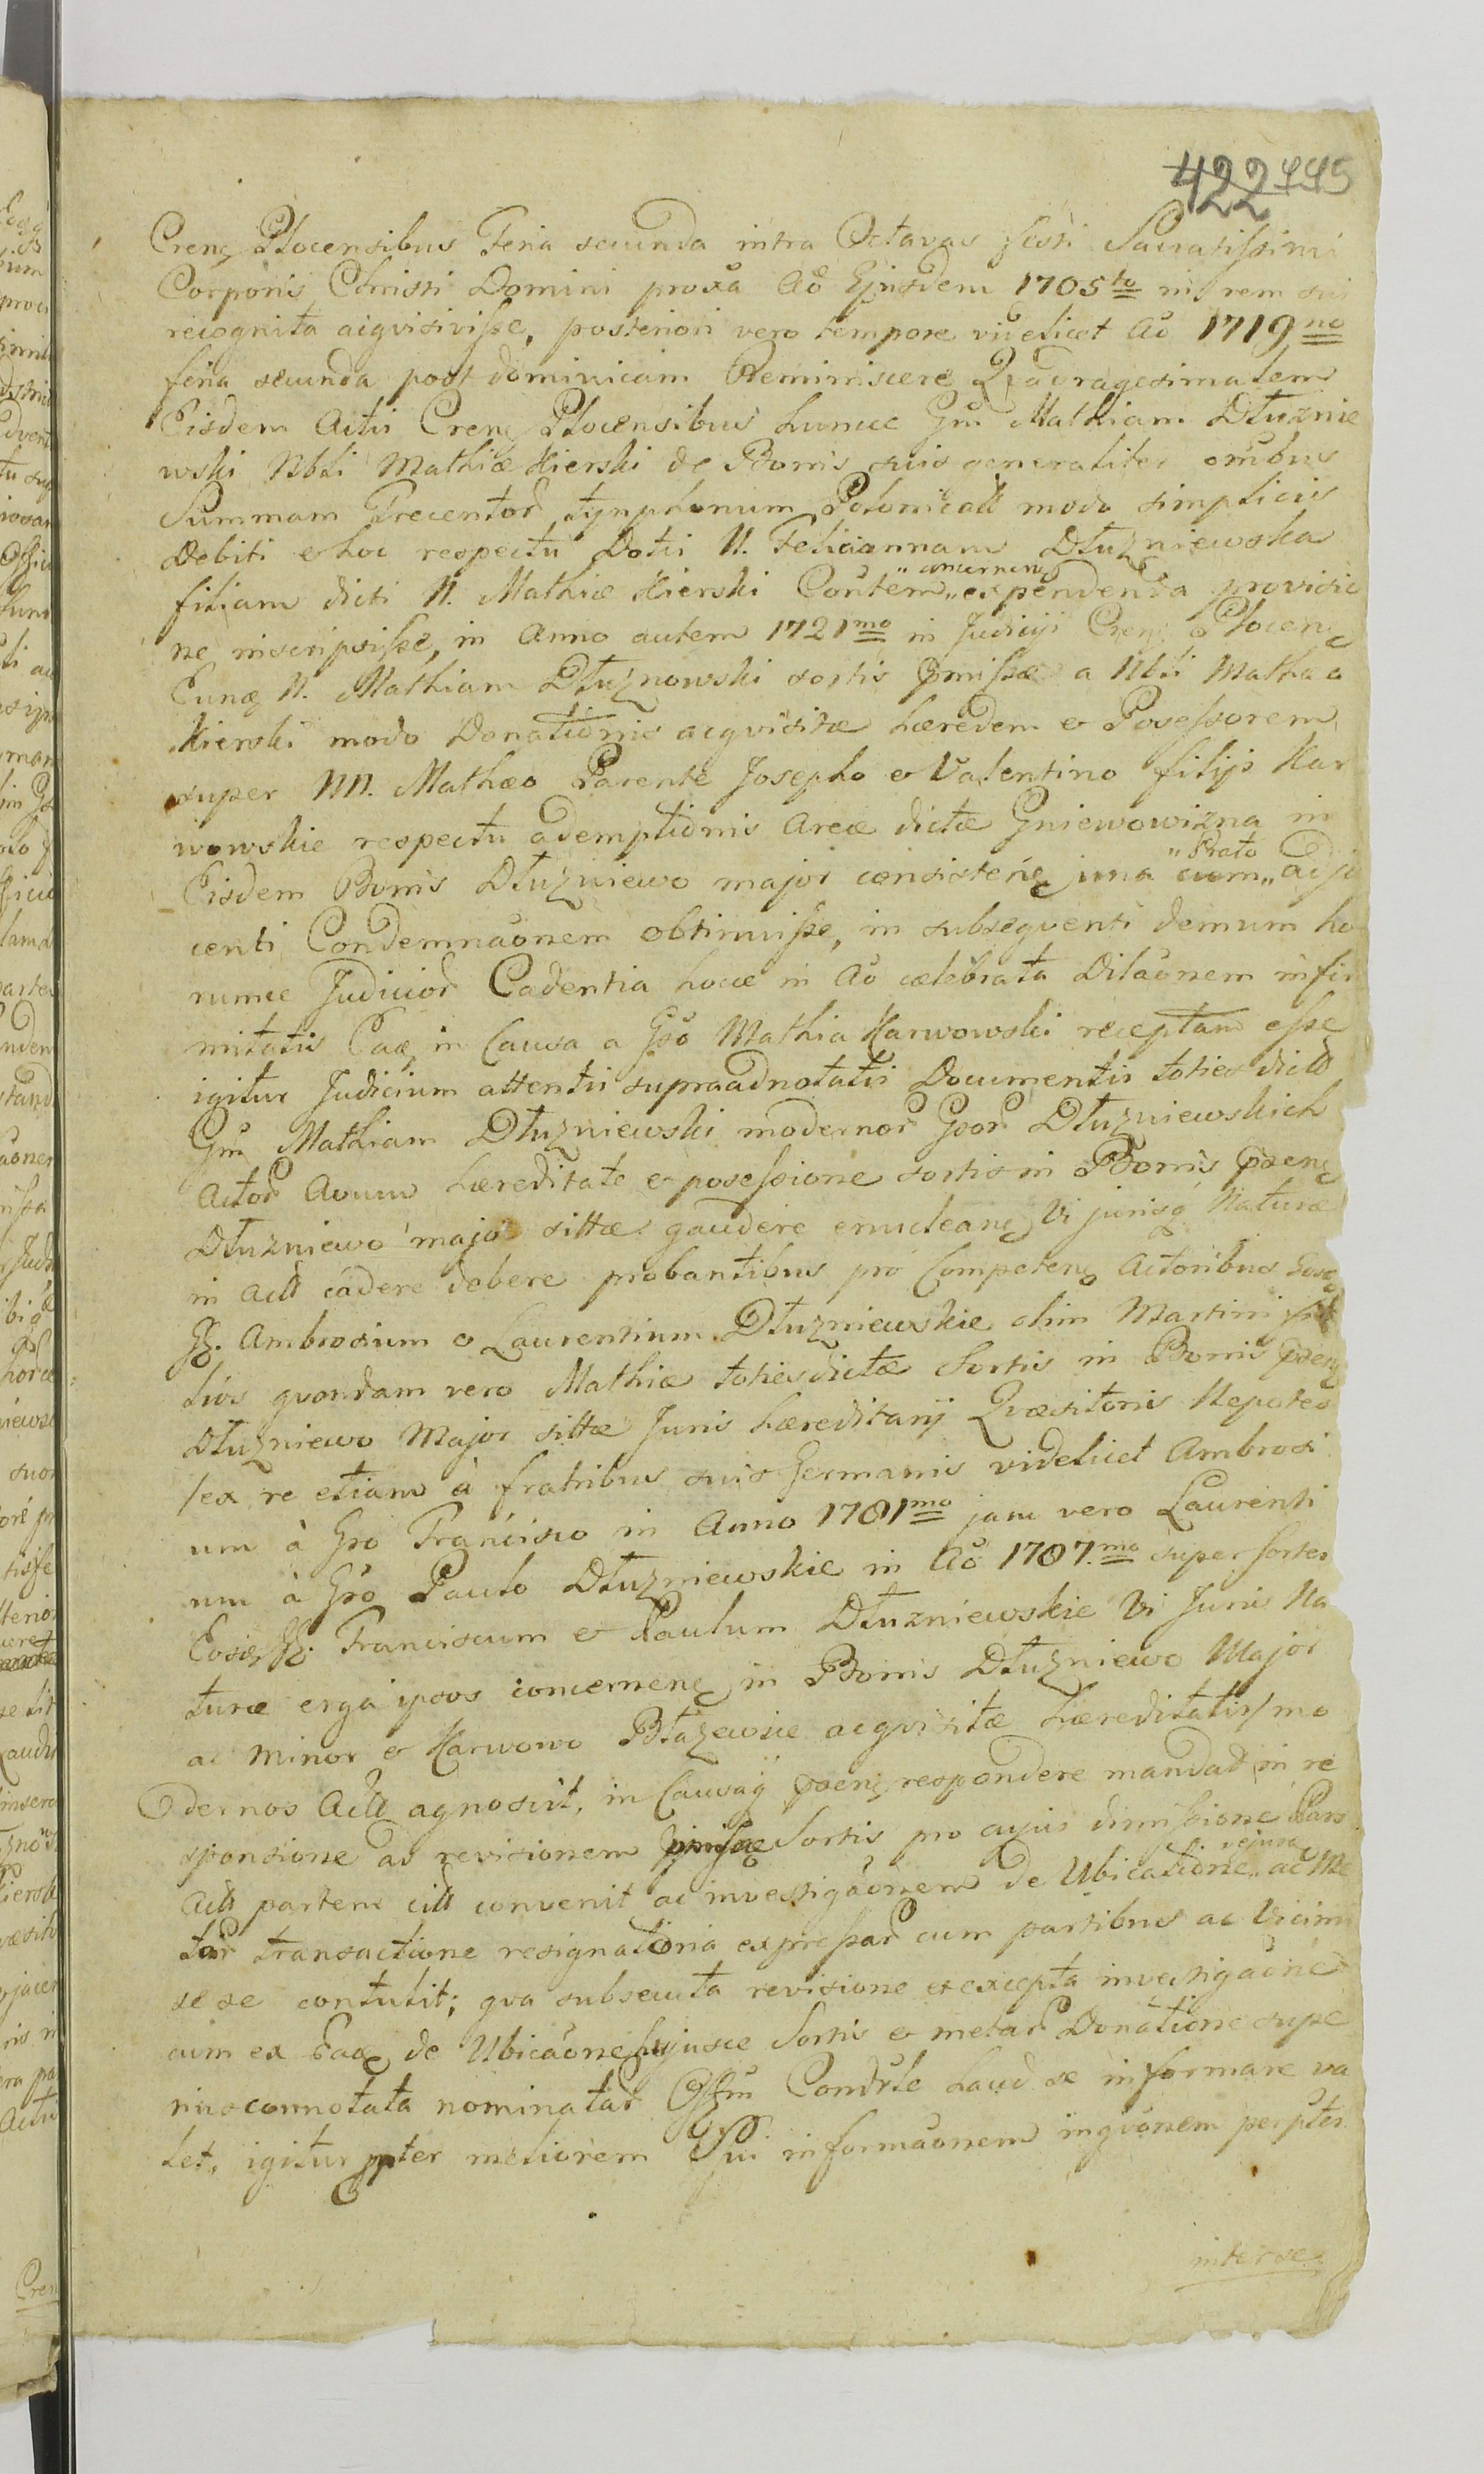 422 445
Crenę Plocensibus Feria secunda intra Octavas festi Sacratissimi
Corporis Christi Domini proxa Aō Ejusdem 1705to in rem sui
recognita aiqvisivisse, posteriori vero tempore videlicet Aō 1719no
feria secunda post dominicam Reminiscere Qvadragesimalem
Eisdem Actis Crenę Plocensibus hunce Gm Mathiam Dłuznie
wski Nbli Mathiæ Kierski de Bonis suis generaliter omībus
Summam Trecentor tynphonum Polonicall modo simplicis
Debiti et hoc respectu Dotis N. Feliciannam Dłuzniewska
filiam dicti N. Mathiæ Kierski Coutem „concernenę expendenda provisio
ne inscripsisse, in Anno autem 1721mo in Judicijs Crenę Plocenę
Eunę N. Mathiam Dłuznowski sortis pmissæ a Nbli Mathæo
Kierski modo Donationis acqvisitæ hæredem et Possessorem
super NN. Mathæo Parente Josepho et Valentino filijs Kar
wowskie respectu ademptionis Areæ dictæ Gniewowizna in
Eisdem Bonis Dłuzniewo major consistenę una cum „Prato adja
centi Condemnaōnem obtinuisse, in subseqventi demum ho
rumce Judicior Cadentia hocce in Aō celebrata Dilaōnem infir
mitatis Eaę in Causa a Gso Mathia Karwowski receptam esse
igitur Judicium attentis supraadnotatis Documentis toties dictt
Gm Mathiam Dłuzniewski modernor Gsor Dłuzniewskich
Actor Avum hæreditate et possessione sortis in Bonis psenę
Dłuzniewo majo sittæ gaudere enucleanę Vi jurisq Naturæ
in Actt cadere debere probantibus pro Competenę Actoribus Eosę
GG. Ambrosium et Laurentium Dłuzniewskie olim Martini fi
lios qvondam vero Mathiæ totiesdictæ Sortis in Bonis psenę
Dłuzniewo Major sittæ Juris hæreditarij Qvæsitoris Nepotes
/ex re etiam à fratribus suis Germanis videlicet Ambrosi
um à Gso Francisco in Anno 1781mo jam vero Laurenti
um à Gso Paulo Dłuzniewskie in Aō 1787.mo super sortes
Eosę GG. Franciscum et Paulum Dłuzniewskie Vi Juris Na
turæ erga ipsos concernenę in Bonis Dłuzniewo Major
ac Minor et Karwowo Błazewice acqvisitæ hæreditatis/ mo
dernos Actt agnoscit, in Causaq psenę respondere mandat in re
sponsione ad revisionem pmissæ Sortis pro cujus dimissione Pars
Actt partem citt convenit ac investigaōnem de Ubicatione „ejusę ac Me
tar transactione resignatoria expressar cum partibus ac Vicinis
se se contulit; qva subsecuta revisione et excepta investigaōne
cum ex Eaę de Ubicaōne hujusce Sortis et metar Donatione supe
rius connotata nominatar Offm Condrle haud se informare va
let, igitur pter meliorem Sui informaōnem inqvōnem perptes
inter se